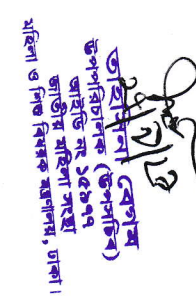 ২৭/২/১৩
তাহমিনা বেগম
উপপরিচালক (উপসচিব)
আইডি নং ১৫৬৭৭
জাতীয় মহিলা সংস্থা
মহিলা ও শিশু বিষয়ক মন্ত্রণালয়, ঢাকা।